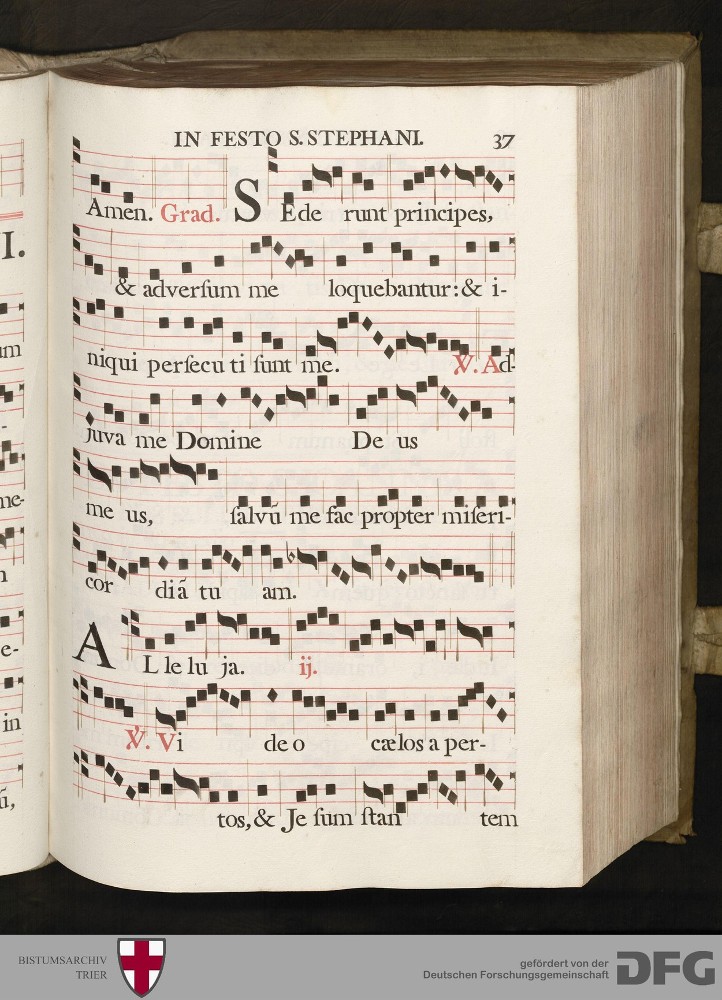 IN FESTO S. STEPHANI. 37
Amen. Grad. SEde runt principes,
& adverſum me loquebantur: & i-
niqui perſecu ti ſunt me. V. Ad-
juva me Domine De us
me us, ſalvũ me fac propter miſeri-
cor diã tu am.
AL le lu ja. ij.
V. Vi deo cælos a per-
tos, & Je ſum ſtan tem
I.
um
-
me-
n
e-
in
ũ,
BISTUMSARCHIV
TRIER
gefördert von der
Deutschen Forschungsgemeinschaft
DFG